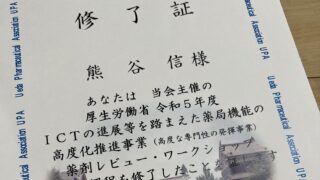 修了証
熊谷 信様
あなたは 当会主催の
厚生労働省 令和5年度
ICTの進展等を踏まえた薬局機能の
高度化推進事業(高度な専門性の発揮事業)
薬剤レビュー・ワークショップ
を修了したことを
Ueda Pharmaceutical Association UPA
Ueda Pharmaceutical Association UPA
Ueda Pharmaceutical Association UPA
Association UPA